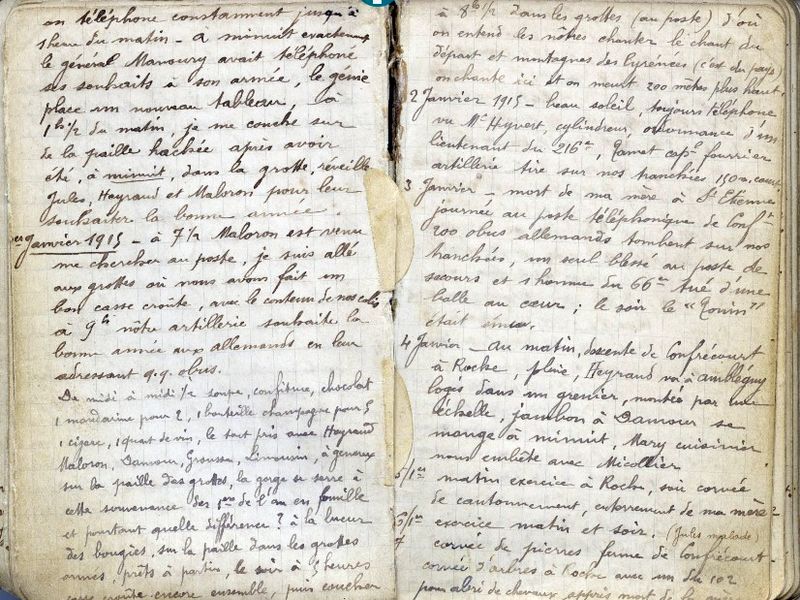 on téléphone constamment jusqu'à
1 heure du matin - a minuit exactement
le général Manoury avait téléphoné
ses souhaits à son armée, le génie
place un nouveau tableau, à
1h 1/2 du matin, je me couche sur
de la paille hachée après avoir
été, à minuit, dans la grotte, réveiller
Jules, Heyraud et Maloron pour leur
souhaiter la bonne année.
1er Janvier 1915 - à 7 1/2 Maloron est venu
me chercher au poste, je suis allé
aux grottes où nous avons fait un
bon casse croûte, avec le contenu de nos colis
à 9h nôtre artillerie souhaite la
bonne année aux allemands en leur
adressant q.q. obus.
De midi à midi 1/2 soupe, confiture, chocolat
1 mandarine pour 2, 1 bouteille champagne pour 5
1 cigare, 1 quart de vin, le tout pris avec Heyraud
Maloron, Damour, Limousin, à genoux
sur la paille des grottes, la gorge se serre à
cette souvenance des 1ers de l'an en famille
et pourtant quelle différence ? à la lueur
des bougies, sur la paille dans les grottes
armes, prêts à partir, le soir à 5 heures
casse croûte encore ensemble, puis coucher
à 8h 1/2 dans les grottes (au poste) d'où
on entend les nôtres chanter le chant du
départ et montagnes des Pyrenées (c'est du pays
on chante ici et on meurt 200 mètres plus haut
2 Janvier 1915 - beau soleil, toujours téléphone
vu Mr Hyvert, cylindreur, ordonnance d'un
lieutenant du 216e, fourrier
artillerie tire sur nos tranchées 150m court
3 Janvier - mort de ma mère à St Etienne
journée au poste téléphonique de Conft
200 obus allemands tombent sur nos
tranchées, un seul blessé au poste de
secours et 1 homme du 66e tué d'une
balle au cœur ; le soir le
était ému.
4 Janvier - au matin, descente de Confrécourt
à Roche, pluie, Heyraud va à Ambleguy
logés dans un grenier, montée par une
échelle, jambon à Damour se
mange à minuit, Mary cuisinier
nous embête avec Micollier
5/1er matin exercice à Roche, soir corvée
de cantonnement, enterrement de ma mère
6/1er exercice matin et soir. (Jules malade)
7 corvée de pierres ferme de Confrécourt
corvée d'arbres à Roche avec un du 102
pour abri de chevaux après mort de la